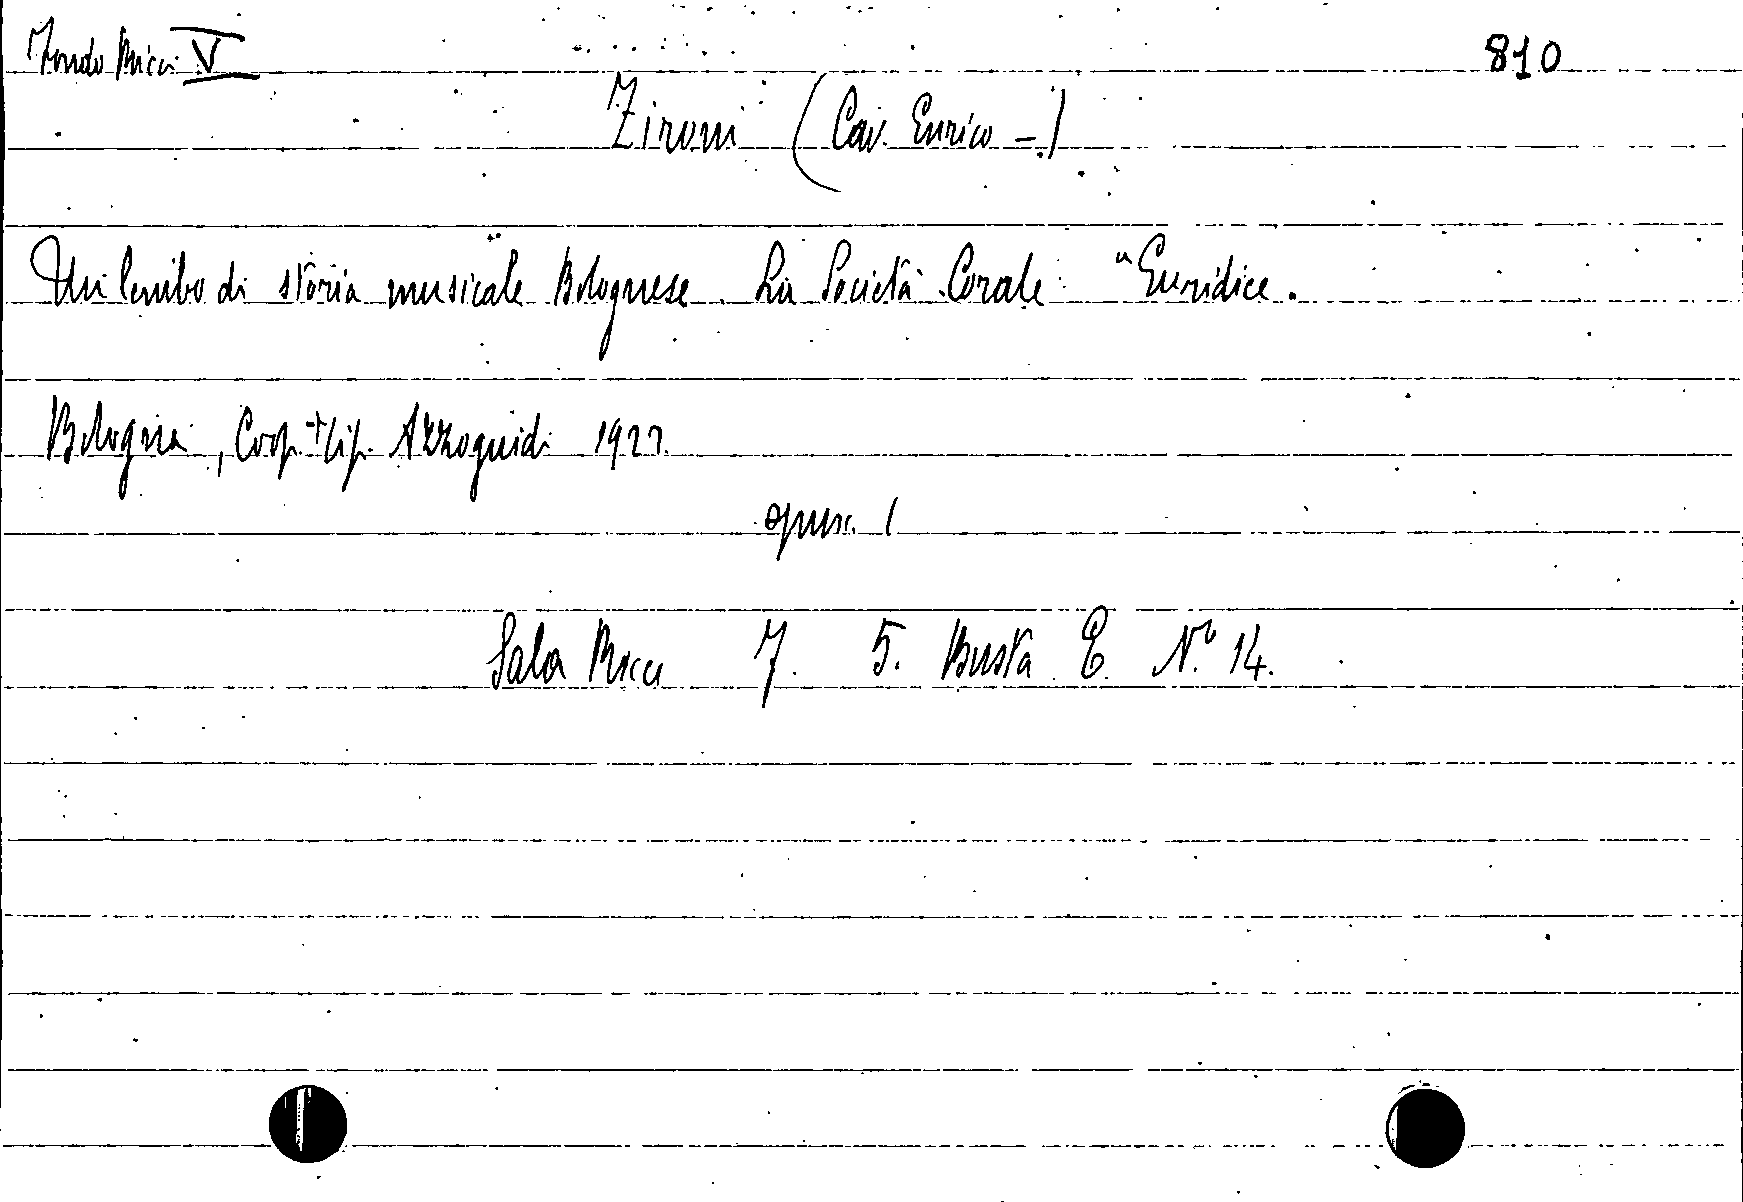 Fondo Ricci V 810
Zironi (Cav. Enrico -)
Un lembo di storia musicale Bolognese. La Società Corale "Euridice.
Bologna, Coop. tip. Azzoguidi 1927.
opusc. 1
Sala Ricci F. 5. Busta E N.º 14.